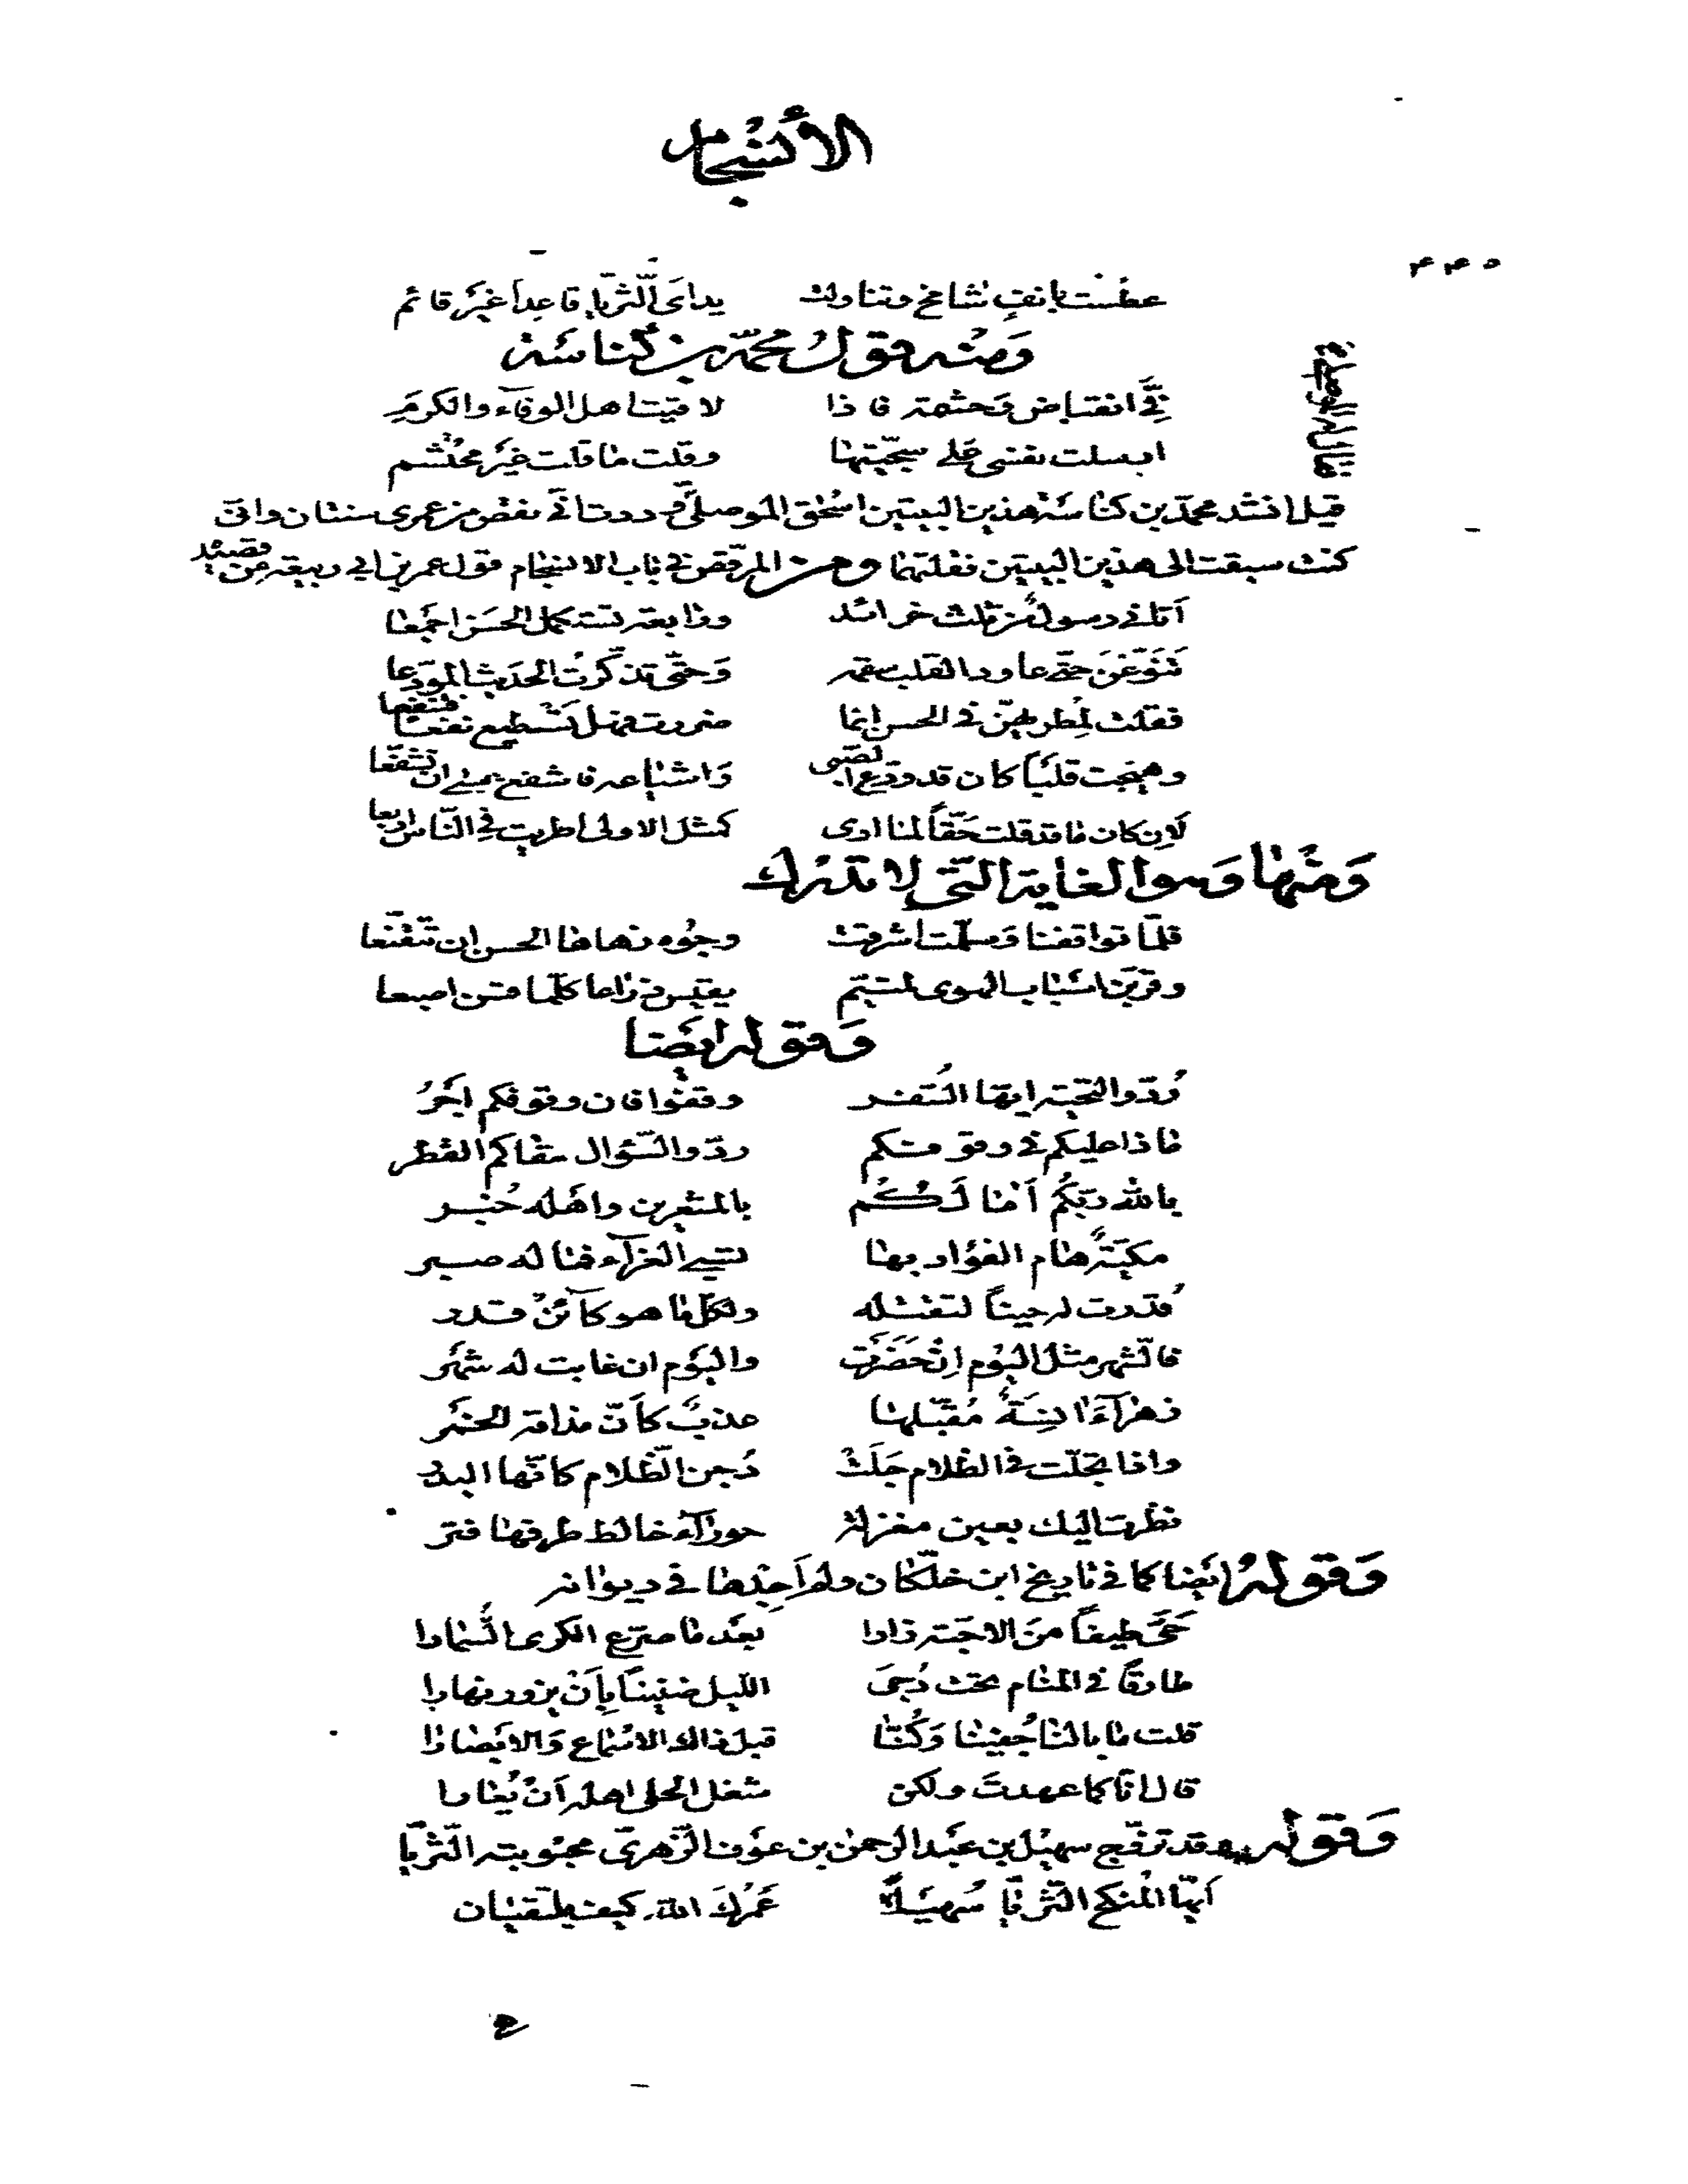 الأنسجام
٤٤٥
عطست بانف شامخ وتناولت يداى الثريا قاعدا غير قائم
ومنه قول محمد بن كناسة
فيّ انقباض وحشمة فاذا لاقيت اهل الوفاء والكرم
ارسلت نفسى على سجيتها وقلت ما قلت غير محتشم
فقال له الموصلي
قيل انشد محمد بن كناسة هذين البيتين اسحق الموصلي وددت انى نقص من عمرى سنتان وانى
كنت سبقت الى هذين البيتين فقلتهما ومن المرقص في باب الانسجام قول عمر بن ابي ربيعة من قصيدة
اتانى رسول من ثلث خرائد ورابعة تستكمل الحسن اجمعا
حتى عاود القلب سقمه وحتى تذكرت الحديث المودعا
فقلت لمطريهن في الحسن انما ضررت فهل تسطيع نفعا فتنفعا
وهيجت قلبا كان قد ودع الصبى واشياعه فاشفع عسى ان تشفعا
لان كان ما قد قلت حقا لما ارى كمثل الاولى اطريت في الناس اربعا
ومنها وهو الغاية التى لا تدرك
فلما تواقفنا وسلمت اشرقت وجوه زهاها الحسن ان تتقنعا
وقربن اسباب الهوى لمتيم يقيس ذراعا كلما قسن اصبعا
وقوله ايضا
ردوا التحية ايها السفر وقفوا فان وقوفكم اجر
ماذا عليكم في وقوفكم ردوا السؤال سقاكم القطر
بالله ربكم اما لكم بالمشعرين واهله خبر
مكية هام الفؤاد بها نسي العزاء فما له صبر
قدرت له حينا لتقتله ولكل ما هو كائن قدر
فالشهر مثل اليوم ان حضرت واليوم ان غابت له شهر
زهراء انسة مقبلها عذب كأن مذاقة الخمر
واذا تجلت في الظلام جلت دجن الظلام كانها البدر
نظرت اليك بعين مغزلة حوراء خالط طرفها فتر
وقوله ايضا كما في تاريخ ابن خلكان ولم اجدها في ديوانه
حي طيفا من الاحبة زارا بعد ما صرع الكرى السمارا
طارقا في المنام تحت دجى الليل ضنينا بان يزور نهارا
قلت ما بالنا جفينا وكنا قبل ذاك الاسماع والابصارا
قال انا كما عهدت ولكن شغل الحلى اهله ان يعارا
وقوله وقد تزوج سهيل بن عبد الرحمن بن عوف الزهرى محبوبته الثريا
ايها المنكح الثريا سهيلا عمرك الله كيف يلتقيان